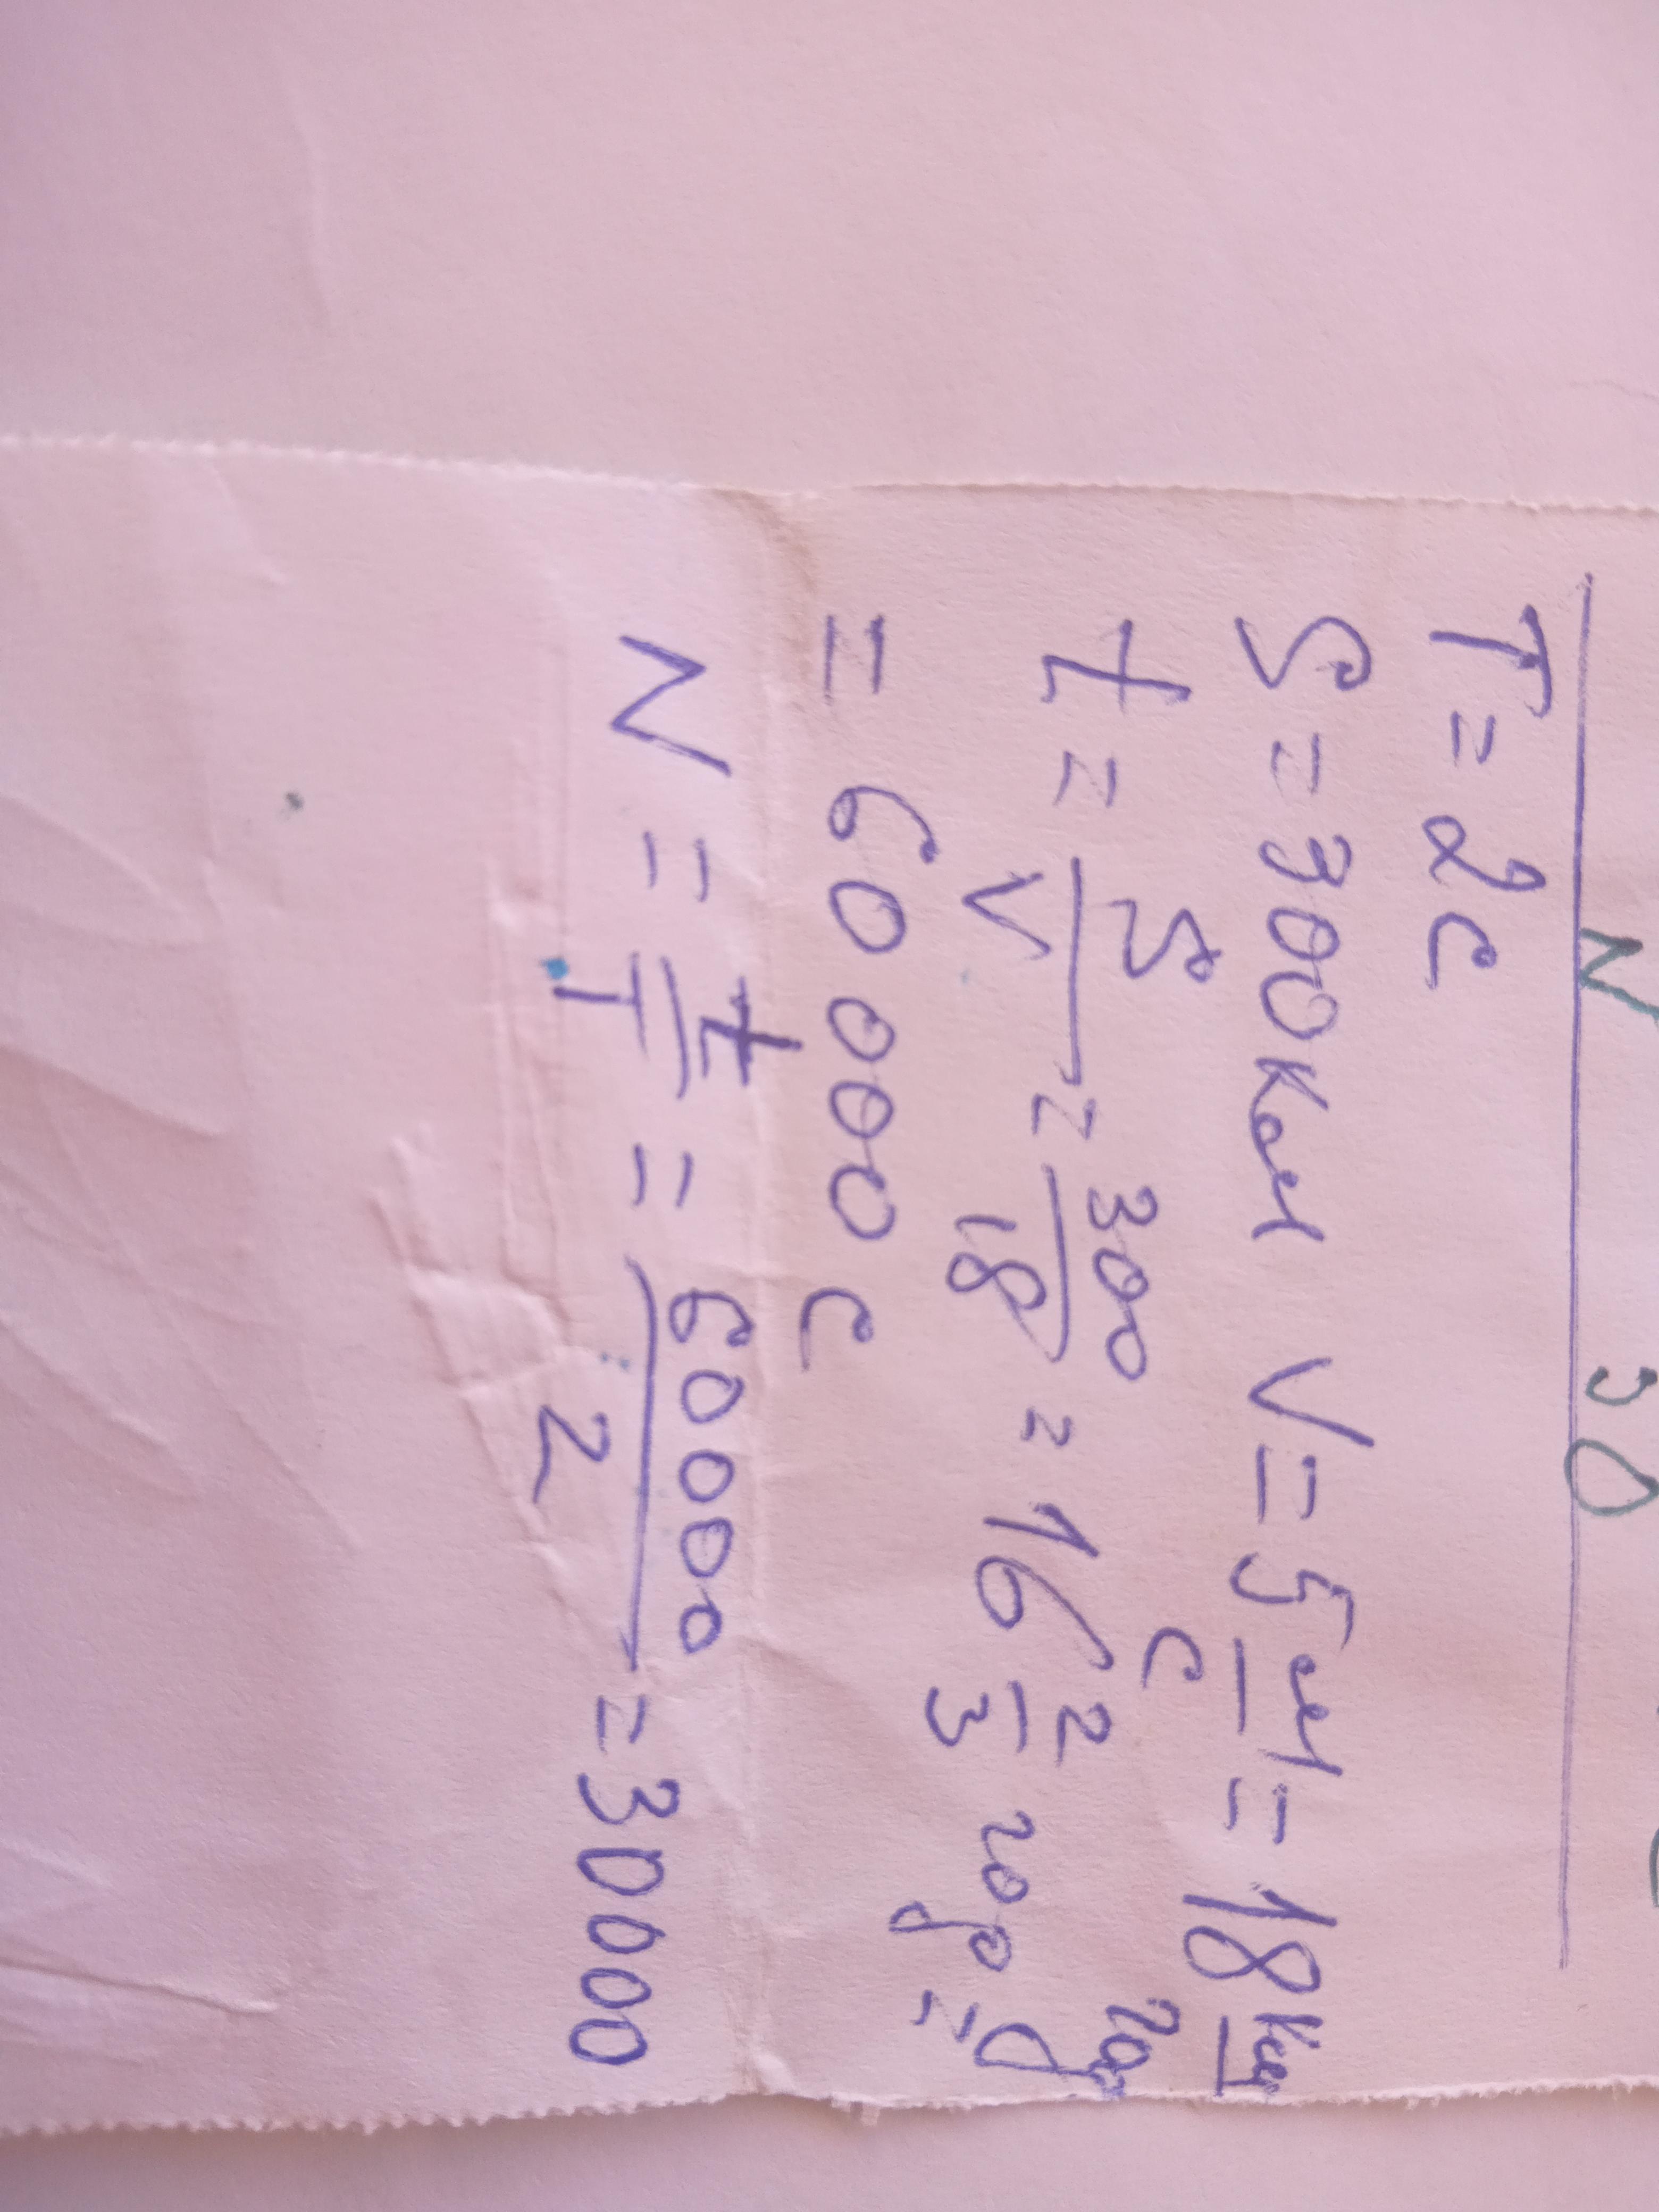 N 30
T = 2 c
S = 300 км V = 5 м/с = 18 км/год
t = S/V = 300/18 = 16 2/3 год =
= 60 000 c
N = t/T = 60000/2 = 30000